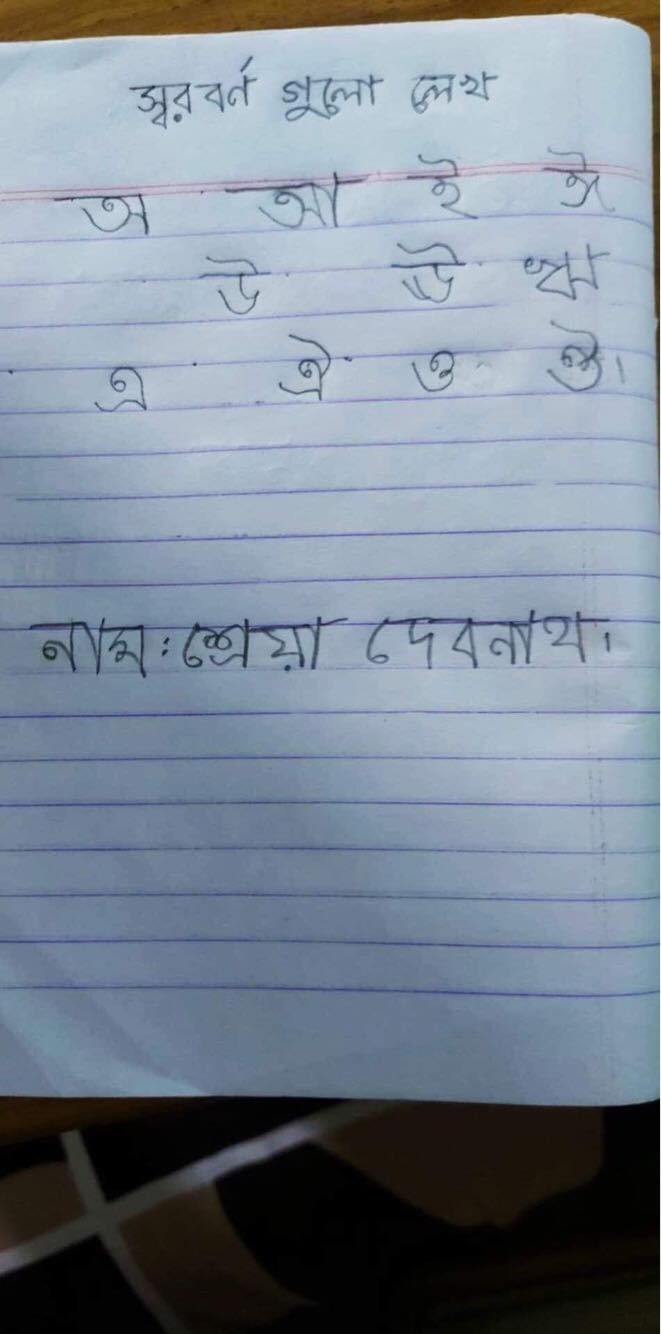 স্বরবর্ন গুলো লেখ
অ আ ই ঈ
উ ঊ ঋ
এ ঐ ও ঔ।
নাম : শ্রেয়া দেবনাথ।